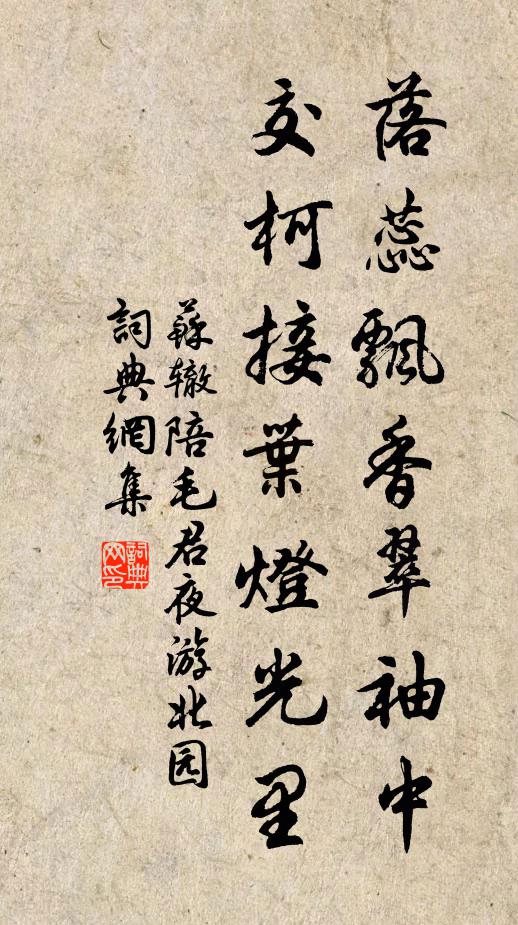 落蕊飄香翠袖中
交柯接葉燈光里
蘇辙陪毛君夜游北园
詞典網集
詞典网印